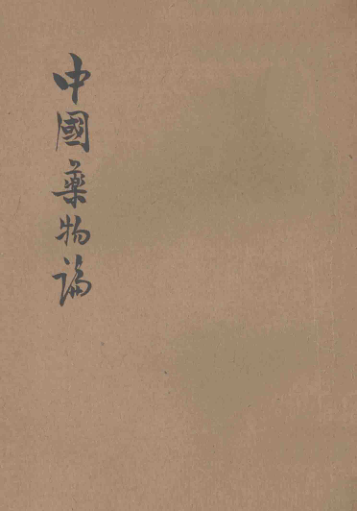 中國藥物論